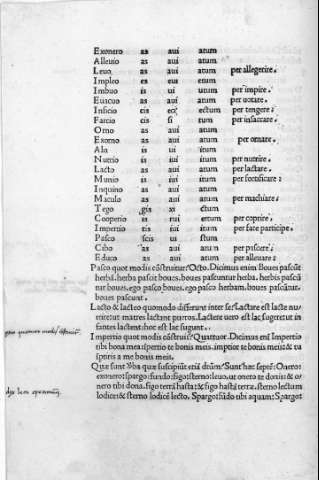 Exonero as aui atum
Alleuio as aui atum
Leuo as aui atum per allegerire.
Impleo es eui etum
Imbuo is ui utum per impire.
Euacuo as aui atum per uotare.
Inficio cis eci ectum per tengere:
Farcio cis si tum per insaccare.
Orno as aui atum
Exorno as aui atum per ornare.
Alo is ui itum
Nutrio is iui itum per nutrire.
Lacto as aui atum per lactare.
Munio is iui itum per fortificare:
Inquino as aui atum
Maculo as aui atum per machiare:
Tego gis xi ctum
Cooperio is rui ertum per coprire.
Impertio tis iui itum per fare participe.
Pasco scis ui stum
Cibo as aui atum per pascere:
Educo as aui atum per alleuare:
Pasco quot modis cõstruitur? Octo. Dicimus enim Boues pascũt
herbã. herba pascit boues. boues pascuntur herba. herbis pascũ
tur boues. ego pasco boues. ego pasco herbam. boues pascunt.
boues pascunt.
Lacto & lacteo quomodo differunt inter se? Lactare est lacte nu-
trire: ut matres lactant pueros. Lactere uero est lac sugere: ut in
fantes lactent: hoc est lac sugunt.
Impertio quot modis cõstruit? Quattuor. Dicimus eni Impertio
tibi bona mea: ipertio te bonis meis. impertior te bonis meis: & tu
ipertiris a me bonis meis.
Quæ sunt uerba quæ suscipiũt etiã datiuũ? Sunt hæc septẽ: Onero:
exonero: spargo: fundo: figo: sterno: leuo. ut onero te donis: & o-
nero tibi dona. figo terrã hasta: & figo hastã terræ. sterno lectum
lodice: & sterno lodicẽ lecto. Spargo: fũdo tibi aquam: Spargo: